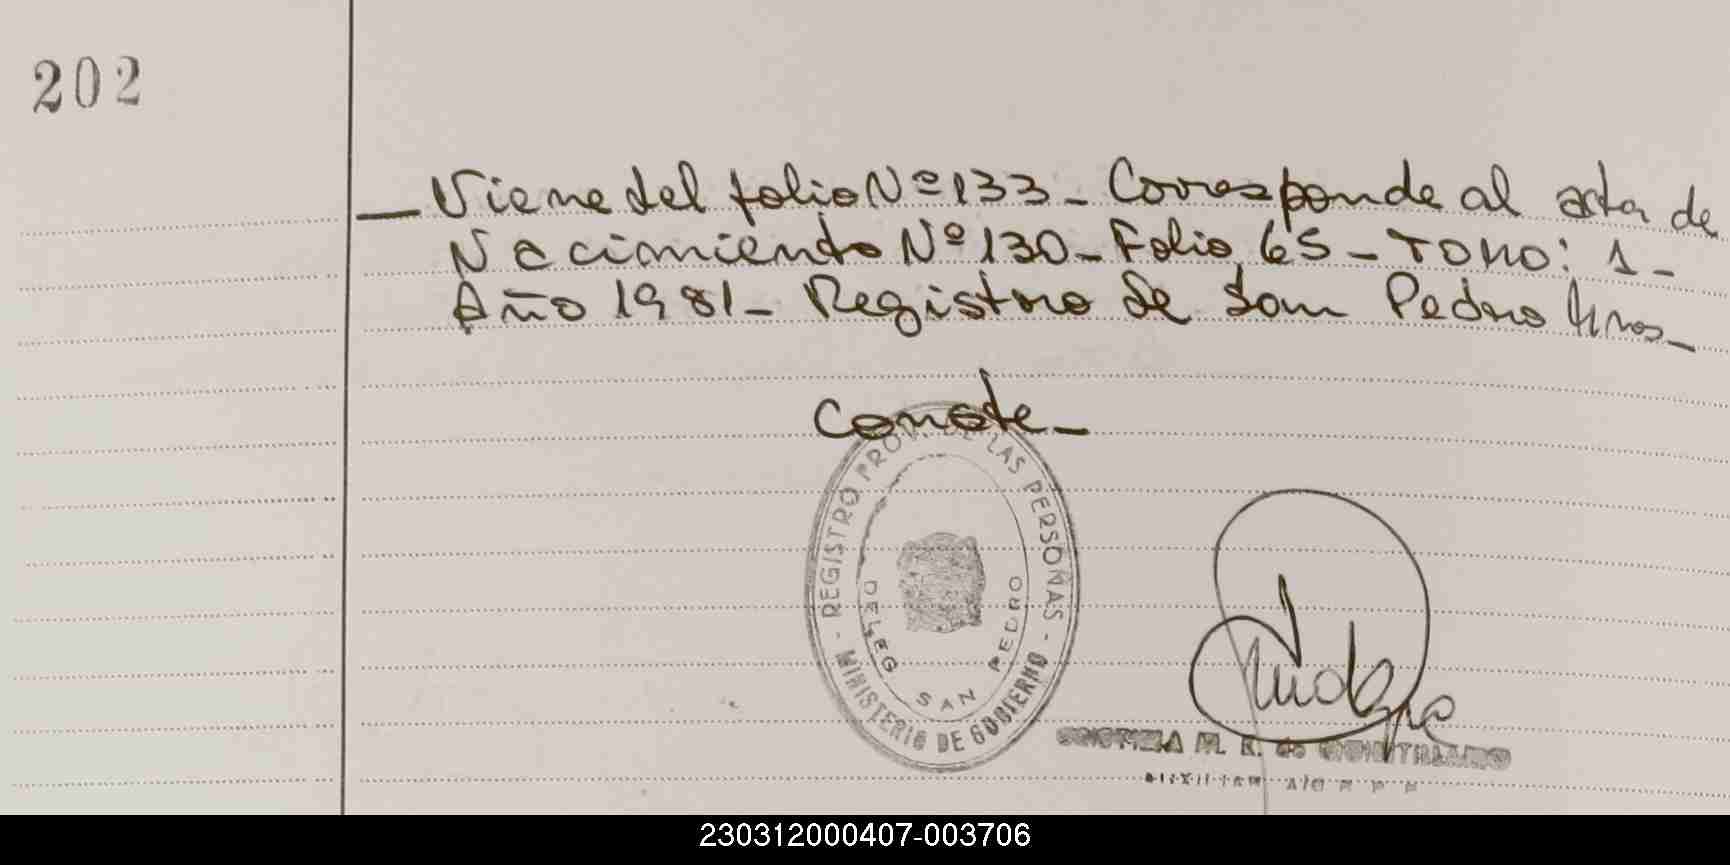 202
— Viene del folio Nº 133 - Corresponde al acta de
Nacimiento Nº 130 - Folio 65 - TOMO: 1 -
Año 1981 - Registro de San Pedro
Conste -
- REGISTRO PROV. DE LAS PERSONAS -
MINISTERIO DE GOBIERNO
DELEG SAN PEDRO
M. E. de
230312000407-003706